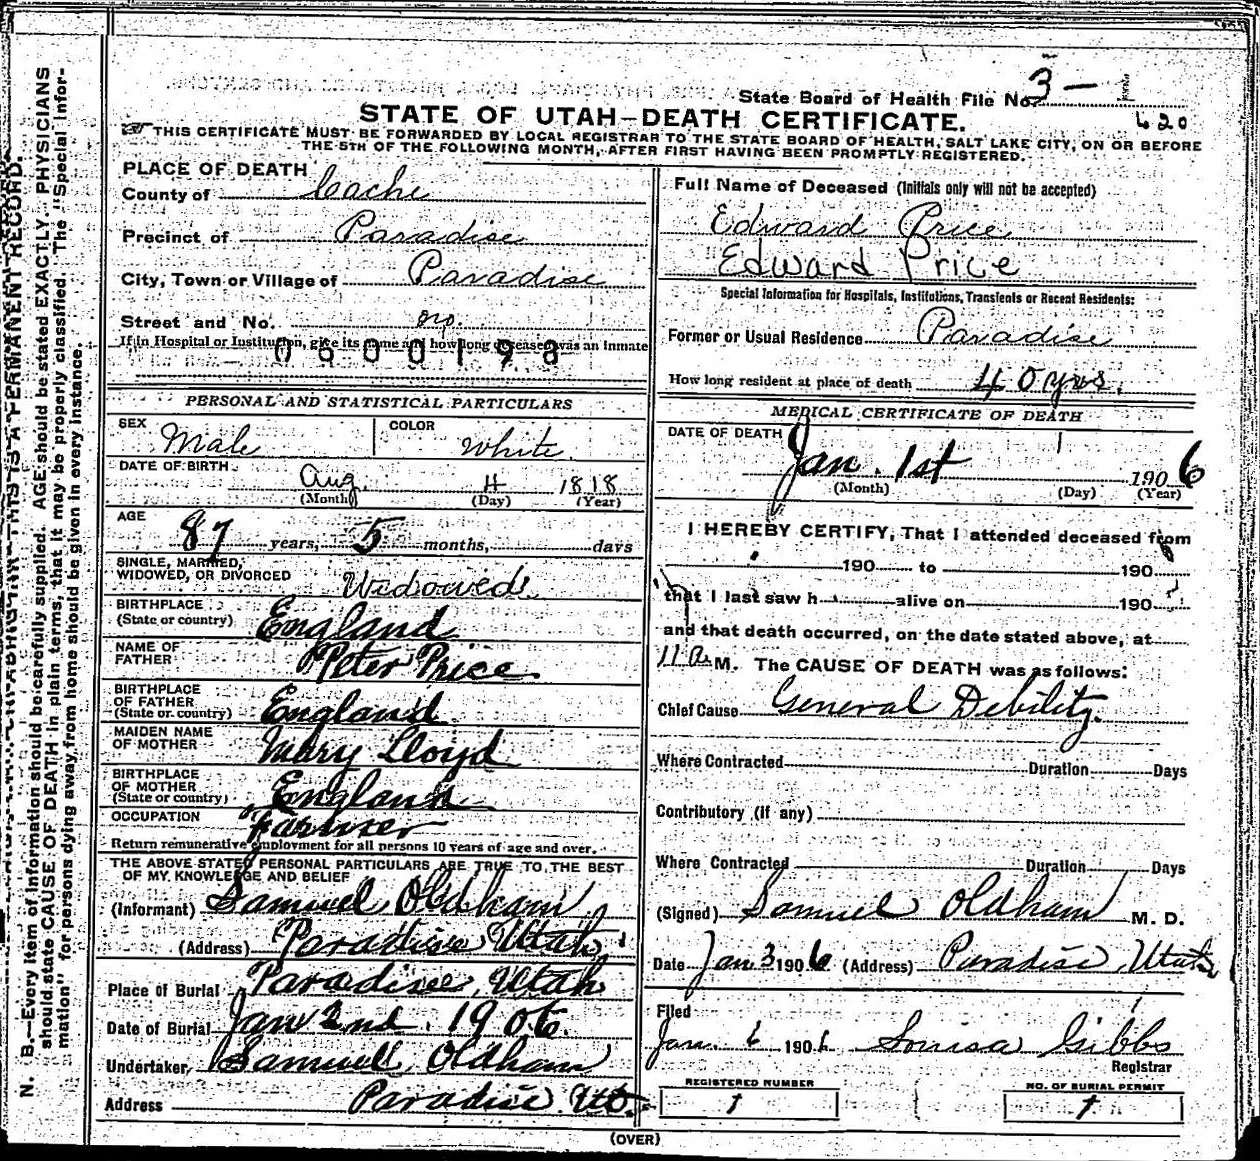 State Board of Health File No. 3 —
620
STATE OF UTAH—DEATH CERTIFICATE.
THIS CERTIFICATE MUST BE FORWARDED BY LOCAL REGISTRAR TO THE STATE BOARD OF HEALTH, SALT LAKE CITY, ON OR BEFORE
THE 5TH OF THE FOLLOWING MONTH, AFTER FIRST HAVING BEEN PROMPTLY REGISTERED.
PLACE OF DEATH
County of Cache
Precinct of Paradise
City, Town or Village of Paradise
Street and No.
If in Hospital or Institution, give its name and how long deceased was an Inmate
0600198
PERSONAL AND STATISTICAL PARTICULARS
SEX Male COLOR White
DATE OF BIRTH Aug. 4 1818
(Month) (Day) (Year)
AGE 87 years, 5 months, days
SINGLE, MARRIED,
WIDOWED, OR DIVORCED Widowed
BIRTHPLACE
(State or country) England
NAME OF
FATHER Peter Price
BIRTHPLACE
OF FATHER
(State or country) England
MAIDEN NAME
OF MOTHER Mary Lloyd
BIRTHPLACE
OF MOTHER
(State or country) England
OCCUPATION Farmer
Return remunerative employment for all persons 10 years of age and over.
THE ABOVE STATED PERSONAL PARTICULARS ARE TRUE TO THE BEST
OF MY KNOWLEDGE AND BELIEF
(Informant) Samuel Oldham
(Address) Paradise Utah
Place of Burial Paradise, Utah
Date of Burial Jan 2nd. 1906.
Undertaker, Samuell Oldham
Address Paradise Ut.
Full Name of Deceased (Initials only will not be accepted)
Edward Price
Edward Price
Special Information for Hospitals, Institutions, Transients or Recent Residents:
Former or Usual Residence Paradise
How long resident at place of death 40 yrs.
MEDICAL CERTIFICATE OF DEATH
DATE OF DEATH
Jan. 1st 1906
(Month) (Day) (Year)
I HEREBY CERTIFY, That I attended deceased from
190 to 190
that I last saw h alive on 190
and that death occurred, on the date stated above, at
11 a. M. The CAUSE OF DEATH was as follows:
Chief Cause General Debility.
Where Contracted Duration Days
Contributory (if any)
Where Contracted Duration Days
(Signed) Samuel Oldham M. D.
Date Jan 3 1906 (Address) Paradise, Utah
Filed
Jan. 6 1906 Louisa Gibbs
Registrar
REGISTERED NUMBER
1
NO. OF BURIAL PERMIT
1
(OVER)
N. B.—Every item of information should be carefully supplied. AGE should be stated EXACTLY. PHYSICIANS
should state CAUSE OF DEATH in plain terms, that it may be properly classified. The "Special Infor-
mation" for persons dying away from home should be given in every instance.